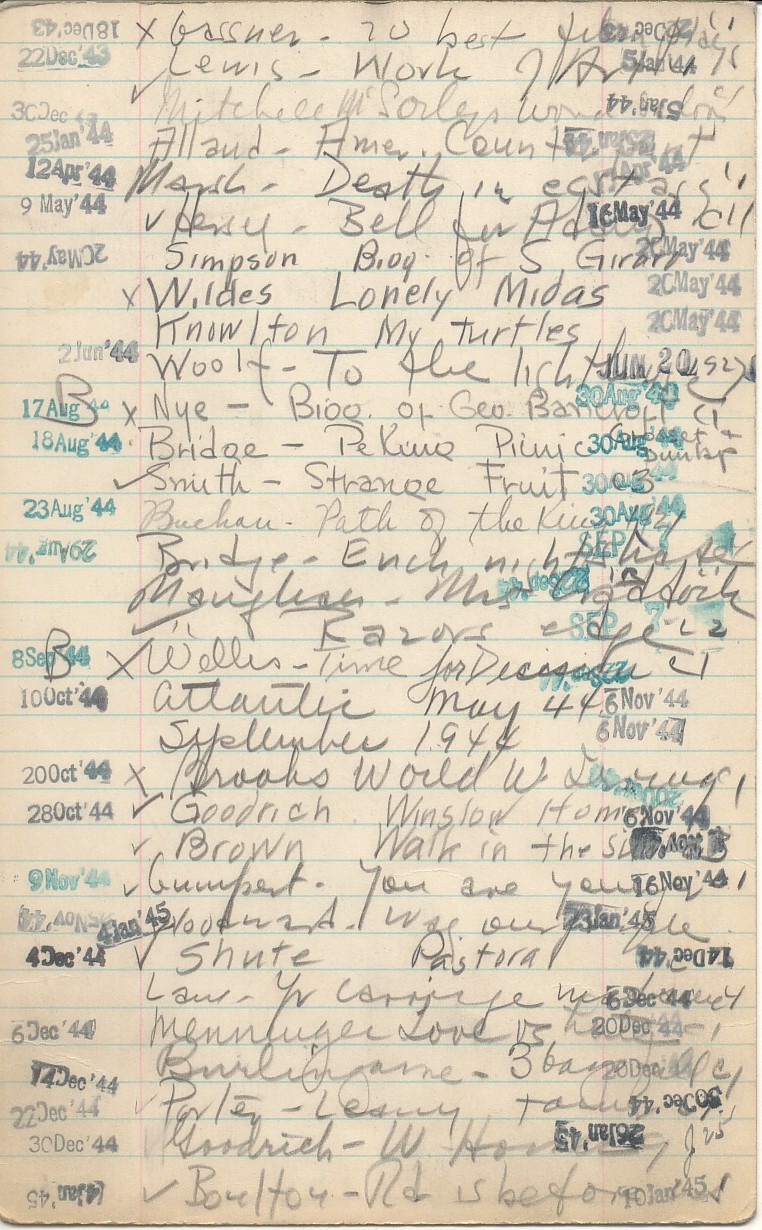 18Dec'43 x Gassner - 20 best film plays
22Dec'43 Lewis - Work of Art 5Jan'44
✓ Mitchell McSorleys wonderful 5Jan'44
30Dec
25Jan'44 Allaud - Amer. Count
12Apr'44 Marsh - Death in ecstasy Apr'44
9 May'44 ✓ Hersey - Bell for Adano 16May'44 c11
20May'44 Simpson Biog. of S Girard 20May'44
x Wildes Lonely Midas 20May'44
Knowlton My turtles 20May'44
2Jun'44 Woolf - To the lighthouse JUN 20
17Aug'44 B x Nye - Biog. of Geo. Bancroft 30Aug c1
18Aug'44 Bridge - Peking Picnic 30Aug'44 Grosset + Dunlap
✓ Smith - Strange Fruit 30Aug'44 c3
23Aug'44 Buchan - Path of the King 30Aug'44
29Aug'44 Bridge - Ench nightshade SEP 7
Maugham - Mrs Craddock 22Sep'44
✓ " Razors edge c2 SEP 7
8Sep'44 B x Welles - Time for Decision c1
10Oct'44 Atlantic May 44 6Nov'44
September 1944 6Nov'44
20Oct'44 x Brooks World W Irving
28Oct'44 ✓ Goodrich Winslow Homer 6Nov'44
✓ Brown Walk in the Sun
9Nov'44 ✓ Gumpert - You are younger 16Nov'44
25Nov'44 4Jan'45 Woodward - Way our people 23Jan'45
4Dec'44 ✓ Shute Pastoral 14Dec'44
Law - Yr carriage madam 6Dec'44
6Dec'44 Menninger Love vs hate 20Dec'44
14Dec'44 Burlingame - 3 bags full 20Dec c1
22Dec'44 ✓ Porter - Leaning tower 30Dec'44
30Dec'44 Goodrich - W Homer 26Jan'45
4Jan'45 ✓ Boulton - Rd is before 10Jan'45